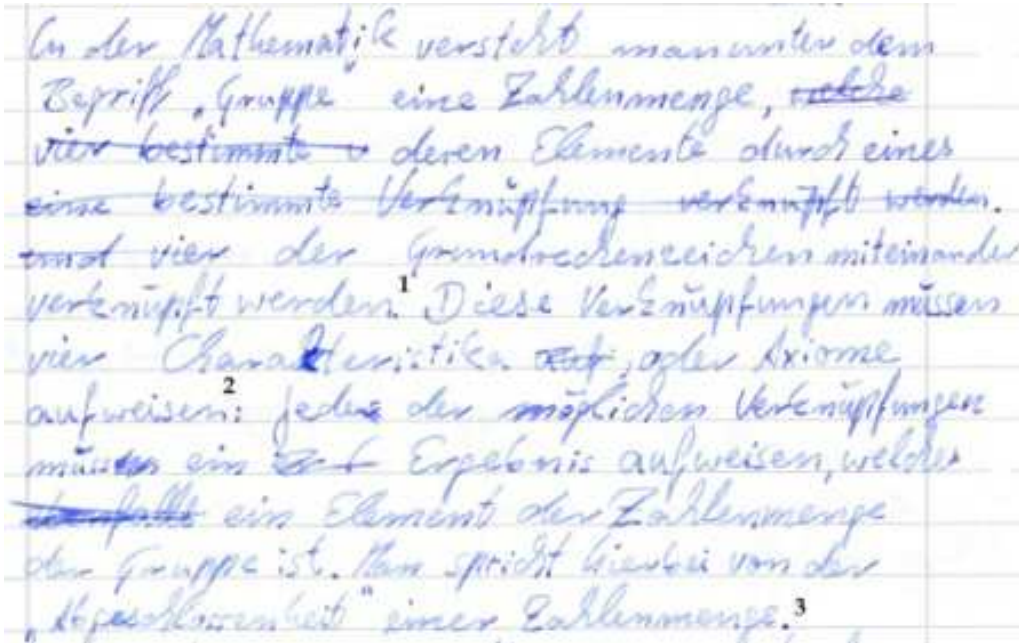 In der Mathematik versteht man unter dem
Begriff „Gruppe" eine Zahlenmenge, welche
vier bestimmte deren Elemente durch eines
eine bestimmte Verknüpfung verknüpft werden.
und vier der Grundrechenzeichen miteinander
verknüpft werden.¹ Diese Verknüpfungen müssen
vier Charakteristika auf, oder Axiome
aufweisen:² jede der möglichen Verknüpfungen
müssen ein Ergebnis aufweisen, welches
ein Element der Zahlenmenge
der Gruppe ist. Man spricht hierbei von der
„Abgeschlossenheit" einer Zahlenmenge.³